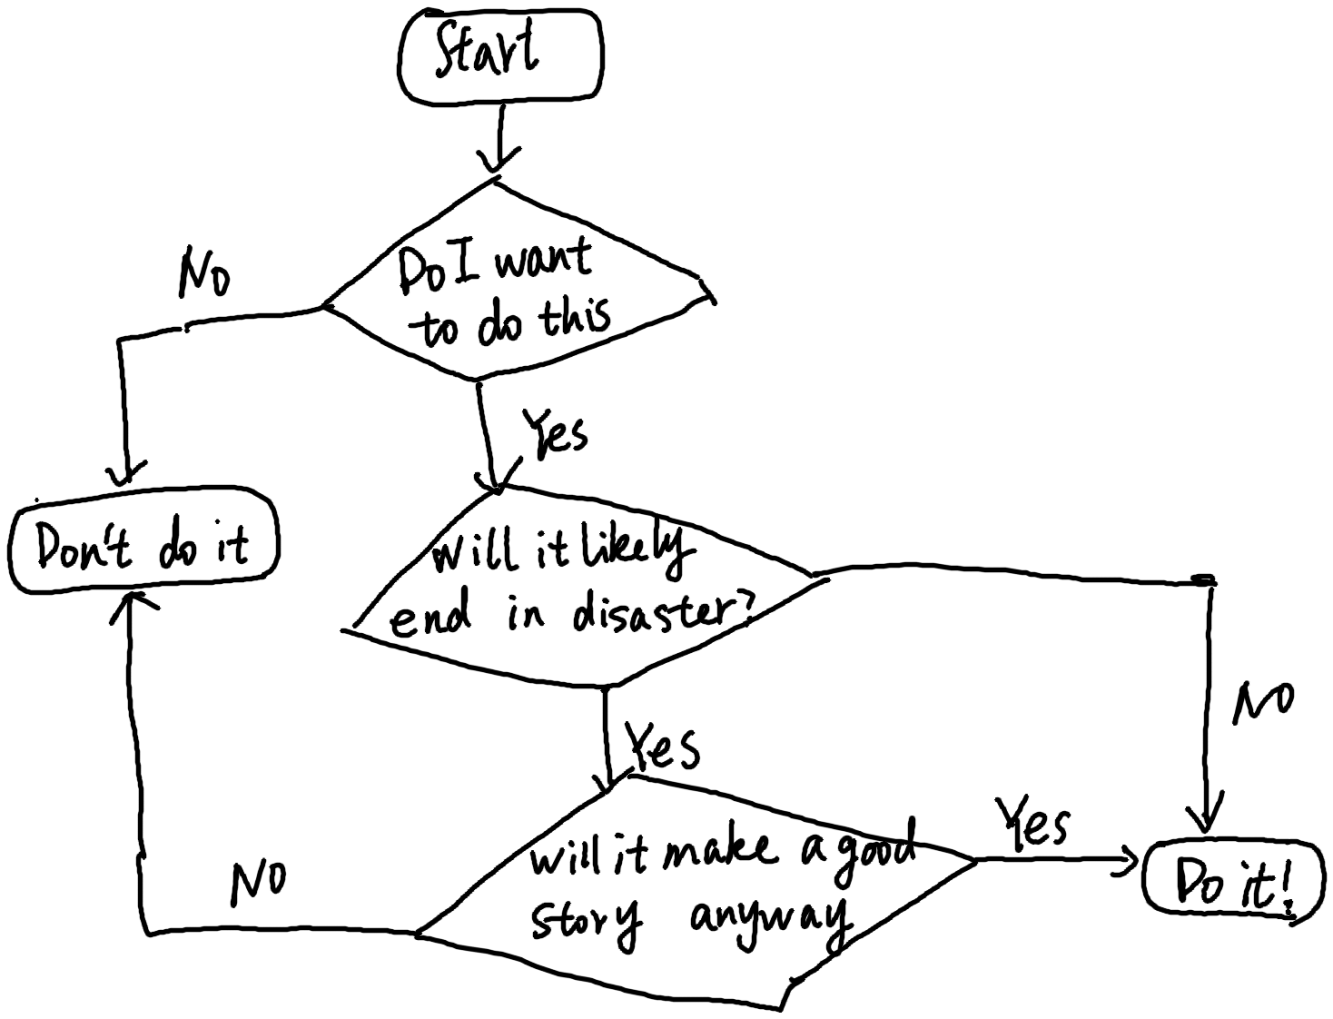 Start
Do I want
to do this
No
Yes
Don't do it
Will it likely
end in disaster?
NO
Yes
will it make a good
story anyway
Yes
NO
Do it!